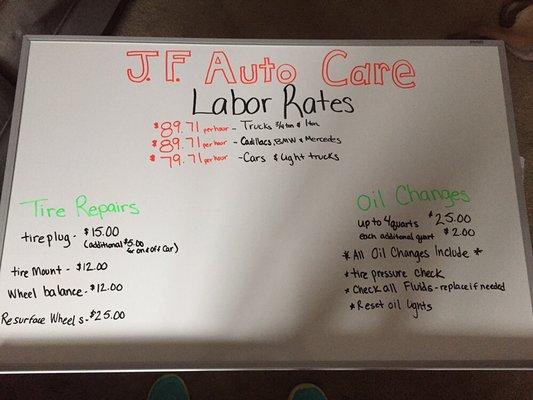 J.F. Auto Care
Labor Rates
$89.71 per hour - Trucks 3/4 ton & 1 ton
$89.71 per hour - Cadillacs, BMW & Mercedes
$79.71 per hour - Cars & Light trucks
Tire Repairs
tire plug - $15.00
(additional $5.00
for on & off car)
tire Mount - $12.00
Wheel balance - $12.00
Resurface Wheels - $25.00
Oil Changes
up to 4 quarts $25.00
each additional quart $2.00
*All Oil Changes Include*
* tire pressure check
* Check all Fluids - replace if needed
* Reset oil lights